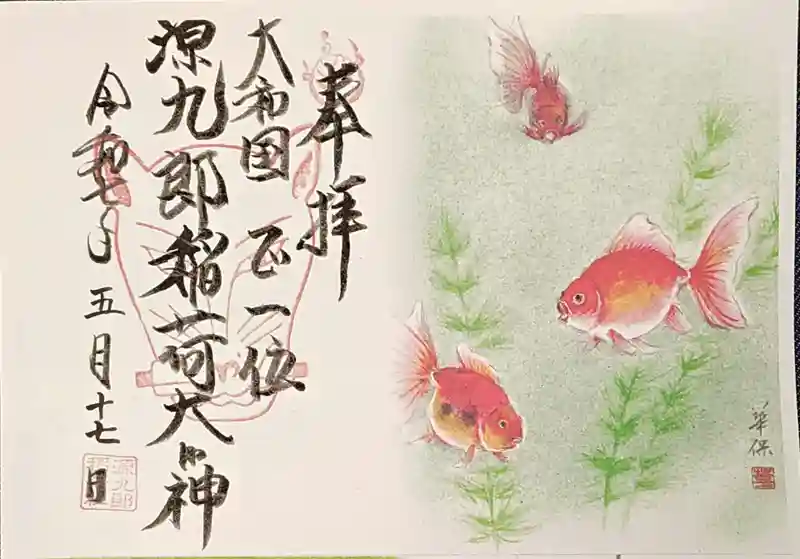 奉拝
大和国 正一位
源九郎稲荷大明神
令和七年
五月十七日
源九郎
華保